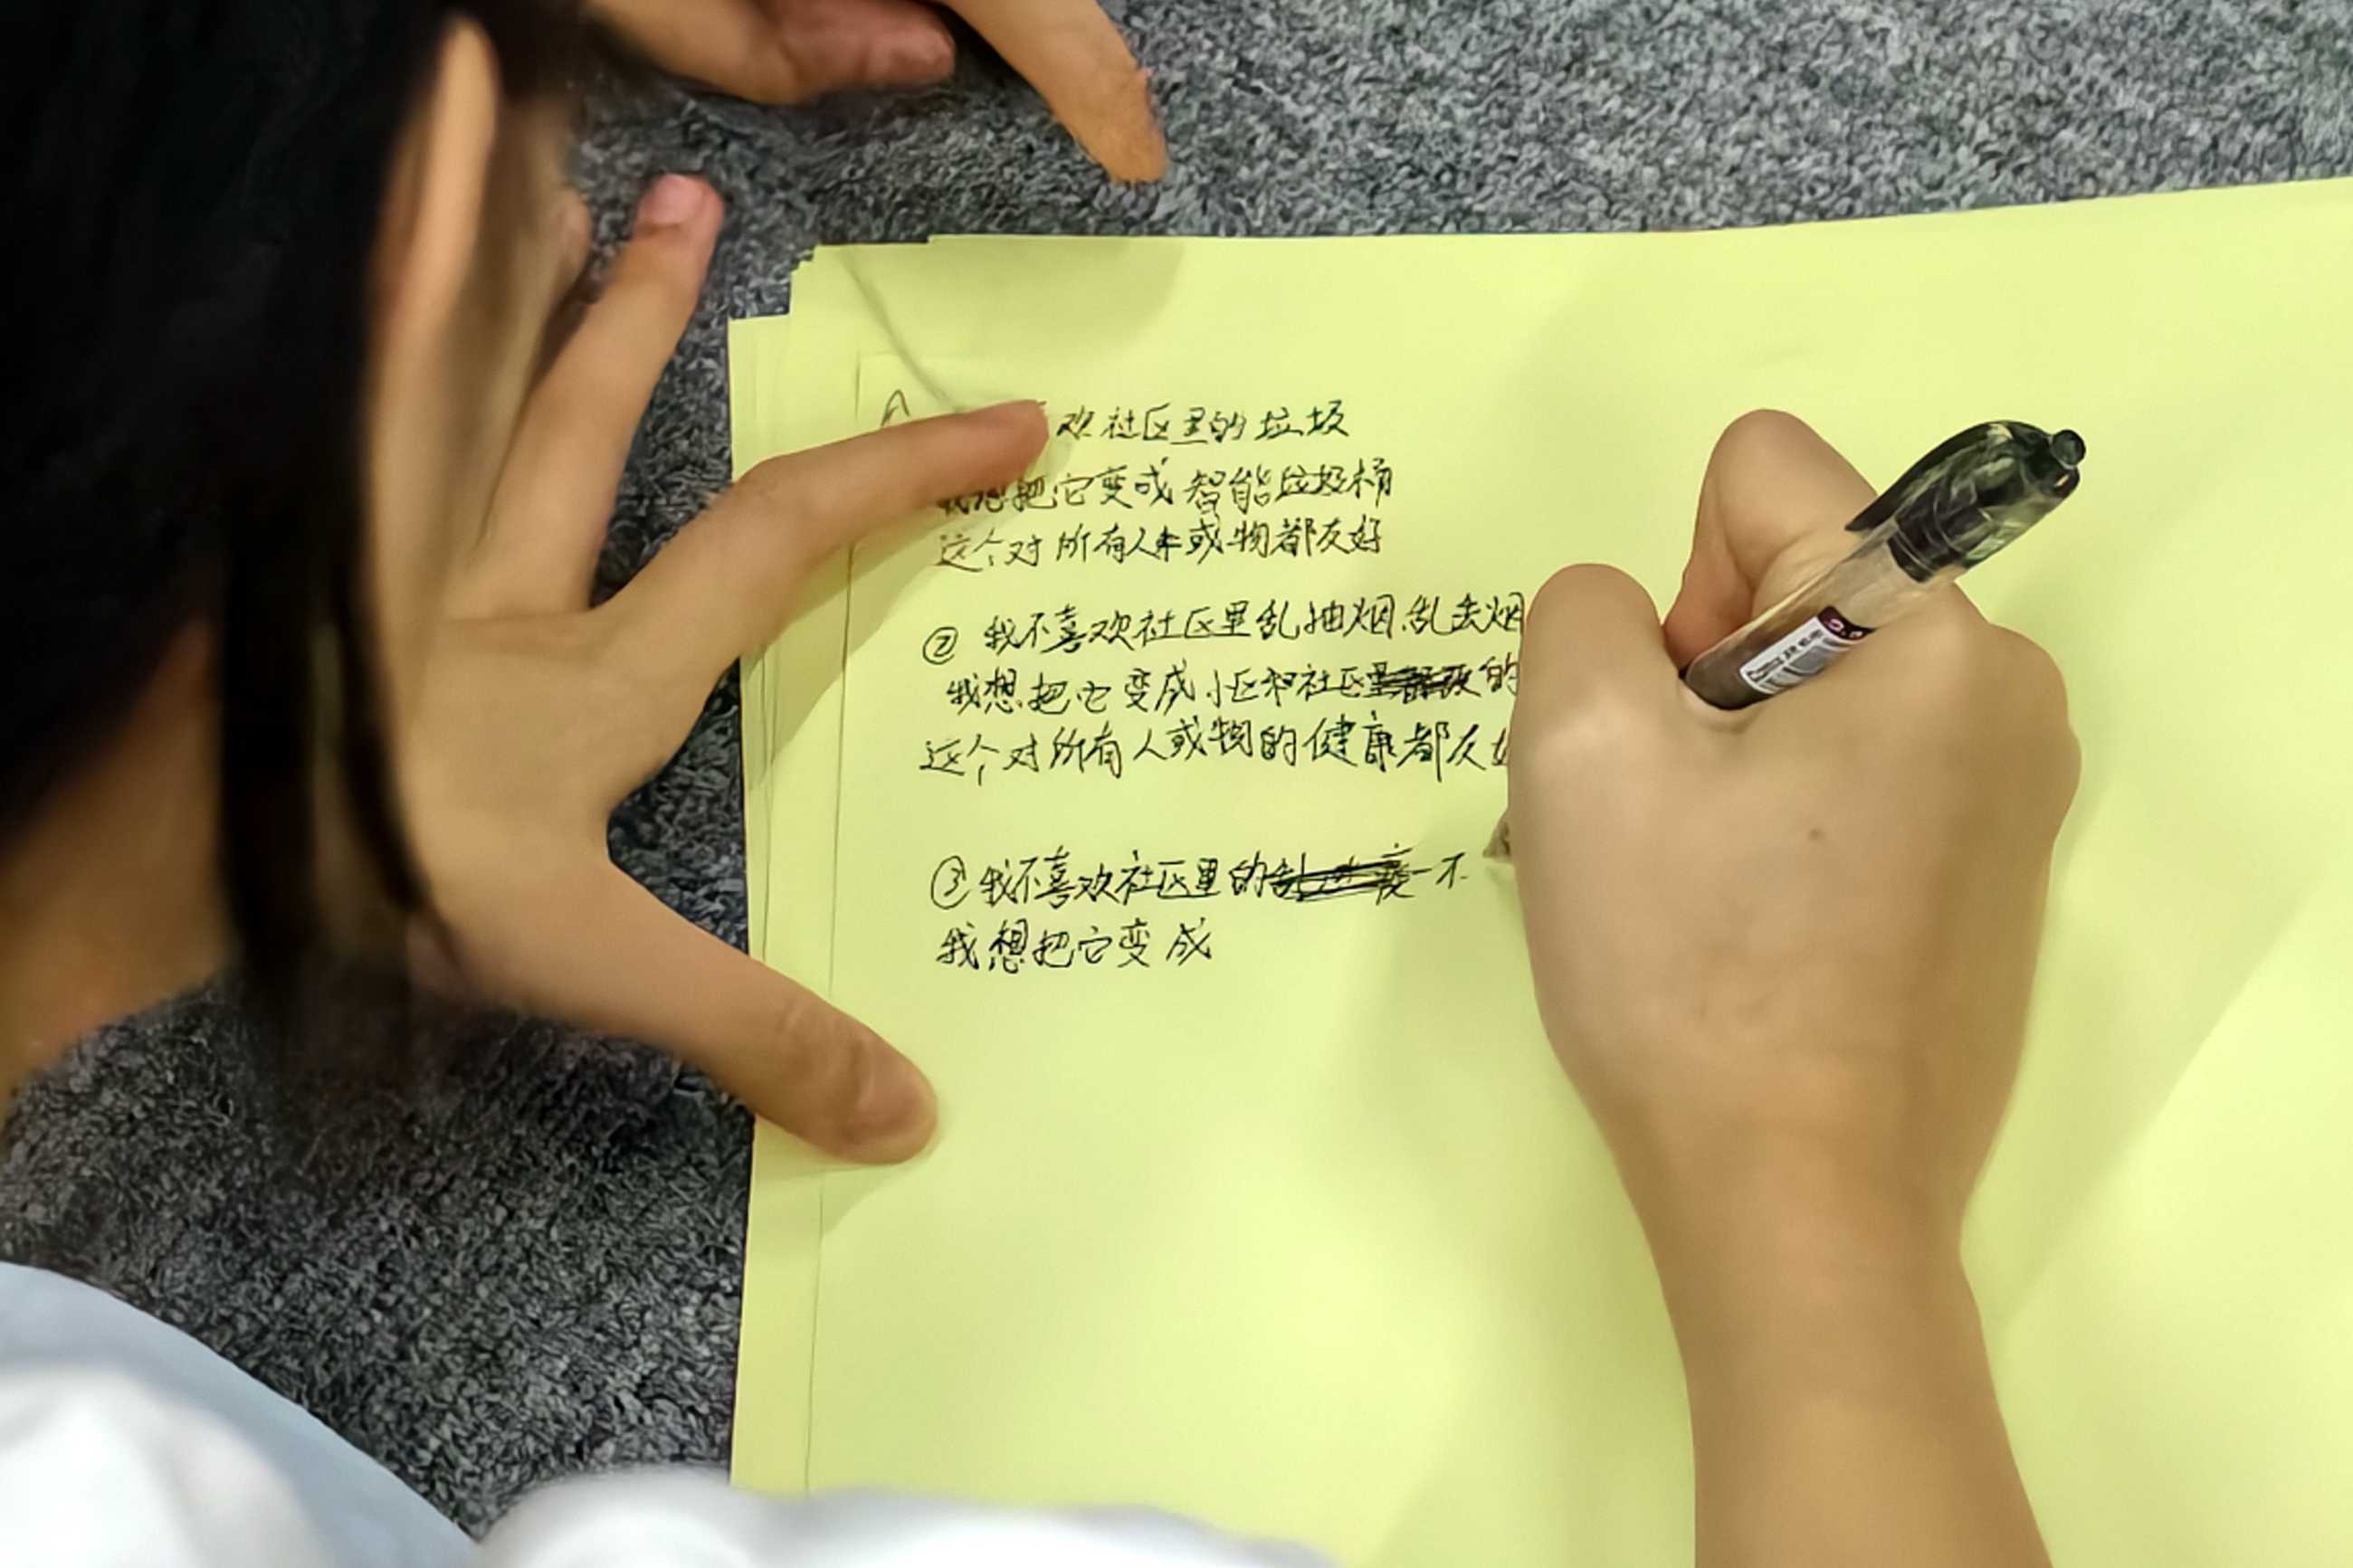 欢社区里的垃圾
我想把它变成智能垃圾桶
这个对所有人或物都友好
② 我不喜欢社区里乱抽烟.乱丢烟
我想把它变成小区和社区的
这个对所有人或物的健康都友好
③ 我不喜欢社区里的一不
我想把它变成